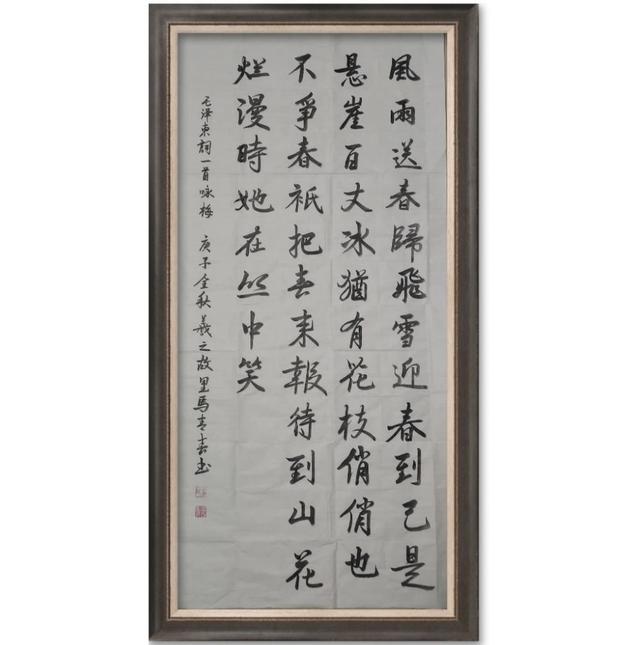 風雨送春歸飛雪迎春到已是
悬崖百丈冰猶有花枝俏俏也
不爭春祇把春来報待到山花
烂漫時她在丛中笑
毛泽東詞一首咏梅 庚子金秋羲之故里馬青春书